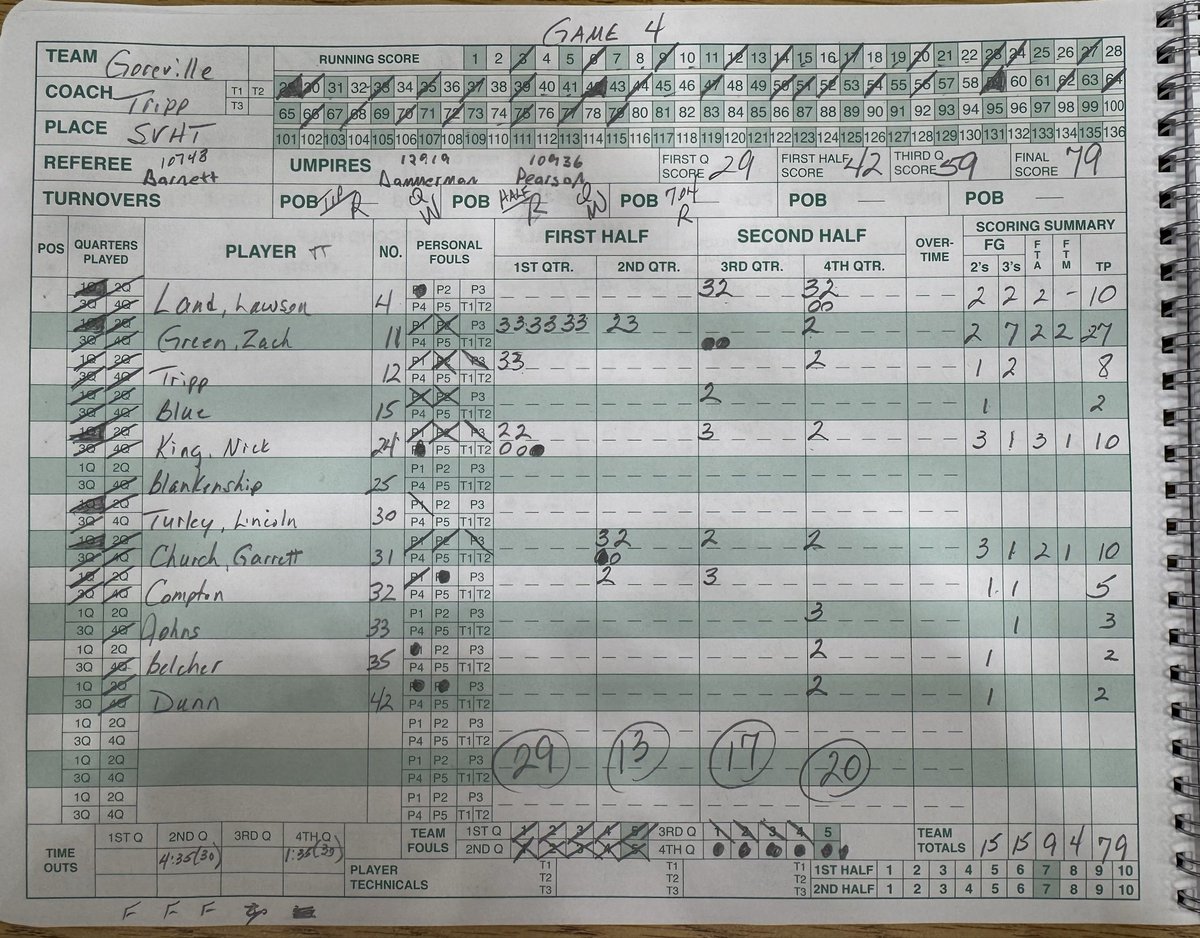 GAME 4
TEAM Goreville RUNNING SCORE 1 2 3 4 5 6 7 8 9 10 11 12 13 14 15 16 17 18 19 20 21 22 23 24 25 26 27 28
COACH Tripp T1 T2 T3 29 30 31 32 33 34 35 36 37 38 39 40 41 42 43 44 45 46 47 48 49 50 51 52 53 54 55 56 57 58 59 60 61 62 63 64
65 66 67 68 69 70 71 72 73 74 75 76 77 78 79 80 81 82 83 84 85 86 87 88 89 90 91 92 93 94 95 96 97 98 99 100
PLACE SVHT 101 102 103 104 105 106 107 108 109 110 111 112 113 114 115 116 117 118 119 120 121 122 123 124 125 126 127 128 129 130 131 132 133 134 135 136
REFEREE 10748 Barnett UMPIRES 12919 Dammerman 10936 Pearson FIRST Q SCORE 29 FIRST HALF SCORE 42 THIRD Q SCORE 59 FINAL SCORE 79
TURNOVERS POB TIP R Q W POB HALF R Q W POB 7:04 R POB — POB —
POS QUARTERS PLAYED PLAYER NO. PERSONAL FOULS FIRST HALF SECOND HALF OVER-TIME SCORING SUMMARY
1ST QTR. 2ND QTR. 3RD QTR. 4TH QTR. FG 2's 3's FTA FTM TP
1Q 2Q 3Q 4Q Land, Lawson 4 P1 P2 P3 P4 P5 T1 T2 32 32 00 2 2 2 - 10
1Q 2Q 3Q 4Q Green, Zach 11 P1 P2 P3 P4 P5 T1 T2 333333 23 2 2 7 2 2 27
1Q 2Q 3Q 4Q Tripp 12 P1 P2 P3 P4 P5 T1 T2 33 2 1 2 8
1Q 2Q 3Q 4Q Blue 15 P1 P2 P3 P4 P5 T1 T2 2 1 2
1Q 2Q 3Q 4Q King, Nick 24 P1 P2 P3 P4 P5 T1 T2 22 00 3 2 3 1 3 1 10
1Q 2Q 3Q 4Q Blankenship 25 P1 P2 P3 P4 P5 T1 T2
1Q 2Q 3Q 4Q Turley, Lincoln 30 P1 P2 P3 P4 P5 T1 T2
1Q 2Q 3Q 4Q Church, Garrett 31 P1 P2 P3 P4 P5 T1 T2 32 0 2 2 3 1 2 1 10
1Q 2Q 3Q 4Q Compton 32 P1 P2 P3 P4 P5 T1 T2 2 3 1 1 5
1Q 2Q 3Q 4Q Johns 33 P1 P2 P3 P4 P5 T1 T2 3 1 3
1Q 2Q 3Q 4Q Belcher 35 P1 P2 P3 P4 P5 T1 T2 2 1 2
1Q 2Q 3Q 4Q Dunn 42 P1 P2 P3 P4 P5 T1 T2 2 1 2
1Q 2Q 3Q 4Q P1 P2 P3 P4 P5 T1 T2
1Q 2Q 3Q 4Q P1 P2 P3 P4 P5 T1 T2 29 13 17 20
1Q 2Q 3Q 4Q P1 P2 P3 P4 P5 T1 T2
TIME OUTS 1ST Q 2ND Q 3RD Q 4TH Q TEAM FOULS 1ST Q 1 2 3 4 5 3RD Q 1 2 3 4 5 TEAM TOTALS 15 15 9 4 79
4:35(30) 1:35(30) 2ND Q 1 2 3 4 5 4TH Q
PLAYER TECHNICALS T1 T2 T3 T1 T2 T3 T1 T2 T3 1ST HALF 1 2 3 4 5 6 7 8 9 10
2ND HALF 1 2 3 4 5 6 7 8 9 10
F F F